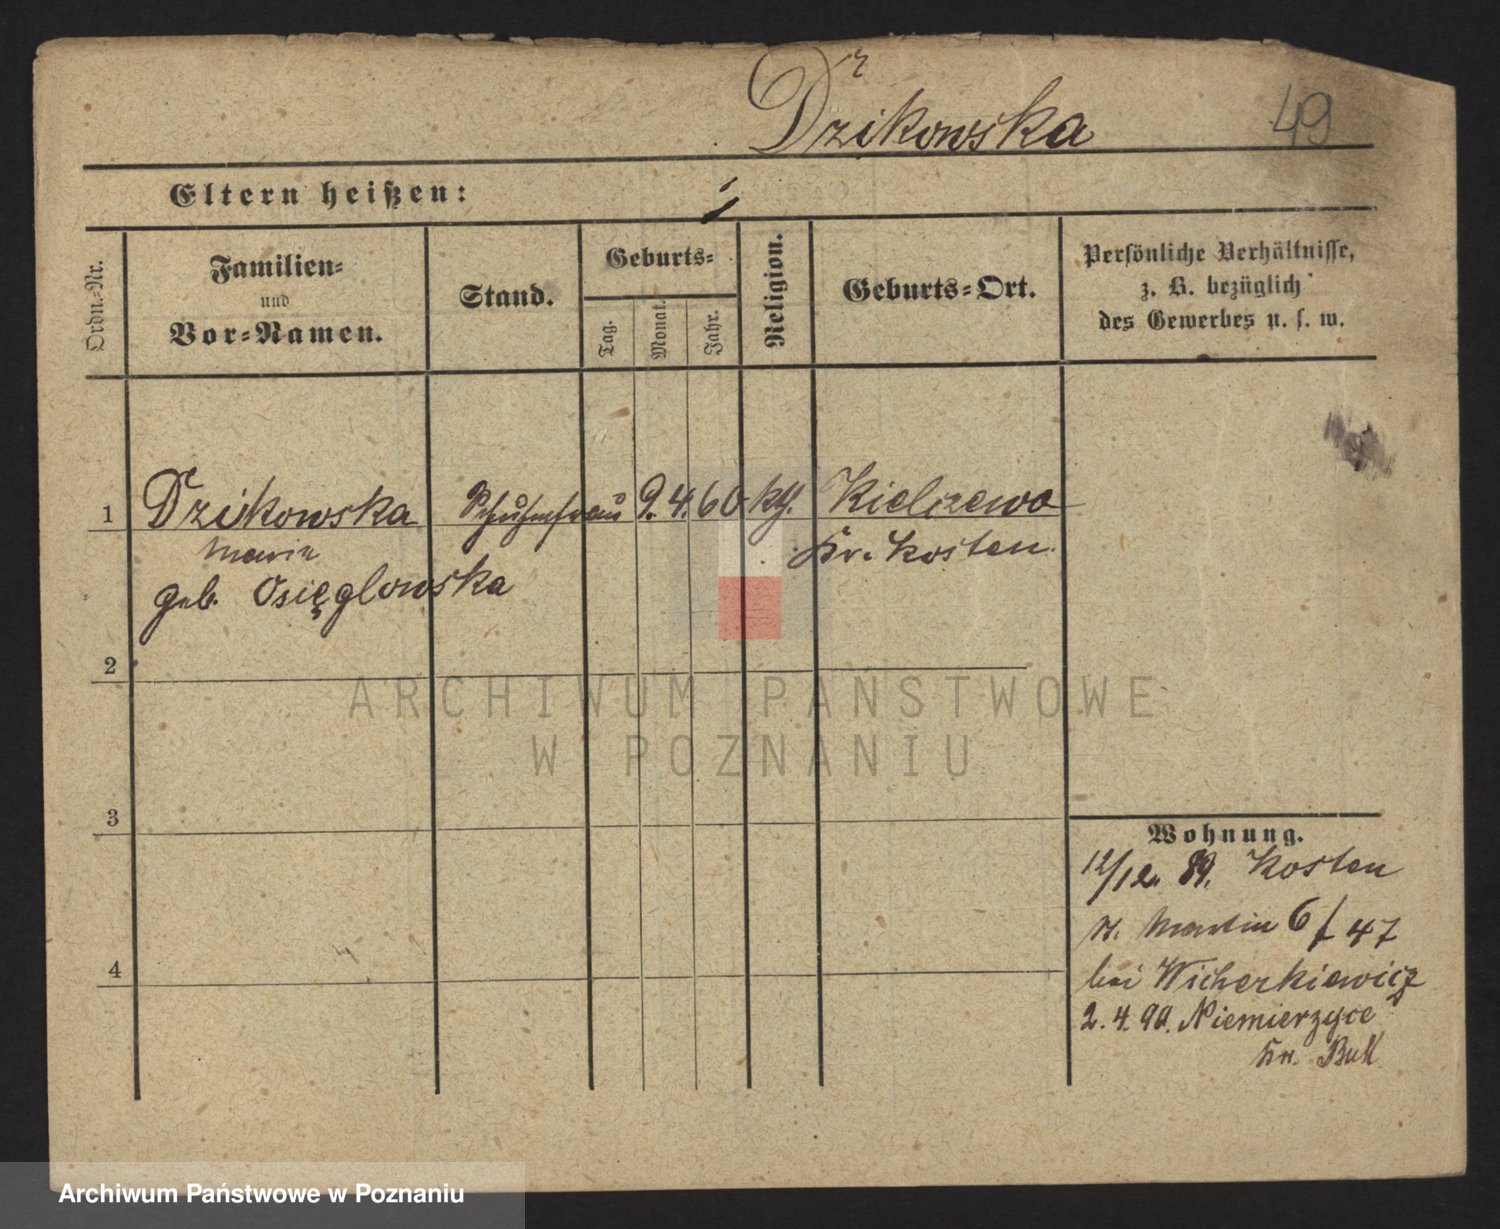 Dzikowska 49
Eltern heißen:
Ordn.-Nr.
Familien-
und
Vor-Namen.
Stand.
Geburts-
Tag.
Monat.
Jahr.
Religion.
Geburts-Ort.
Persönliche Verhältnisse,
z. B. bezüglich
des Gewerbes u. s. w.
1 Dzikowska 9. 4. 60 kth. Kielczewo
Maria Kr. Kosten
geb. Osięglowska
2
ARCHIWUM PAŃSTWOWE
W POZNANIU
3
4
Wohnung.
12/12. 89. Kosten
St. Martin 6/ 47
bei Wicherkiewicz
2. 4. 90. Niemierzyce
Kr. Buk
Archiwum Państwowe w Poznaniu